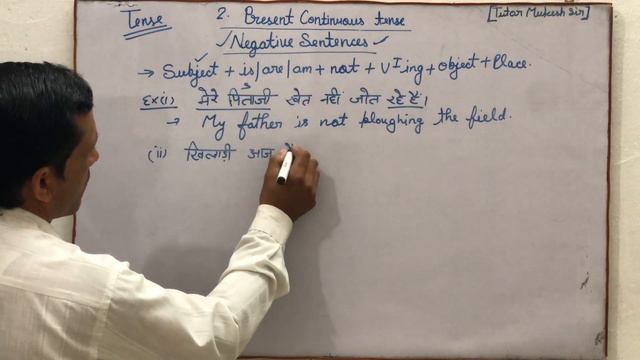 Tense 2. Present Continuous tense [Tutor Mukesh Sir]
✓Negative Sentences✓
→ Subject + is/are/am + not + V¹ing + object + Place.
Ex(i) मेरे पिताजी खेत नहीं जोत रहे हैं।
→ My father is not ploughing the field.
(ii) खिलाड़ी आज